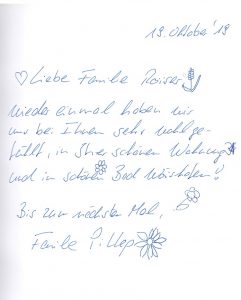 19. Oktober '19
Liebe Familie
wieder einmal haben wir
uns bei Ihnen sehr wohl ge-
fühlt, in Ihrer schönen Wohnung
und in schönen Bad Wörishofen!
Bis zum nächsten Mal,
Familie